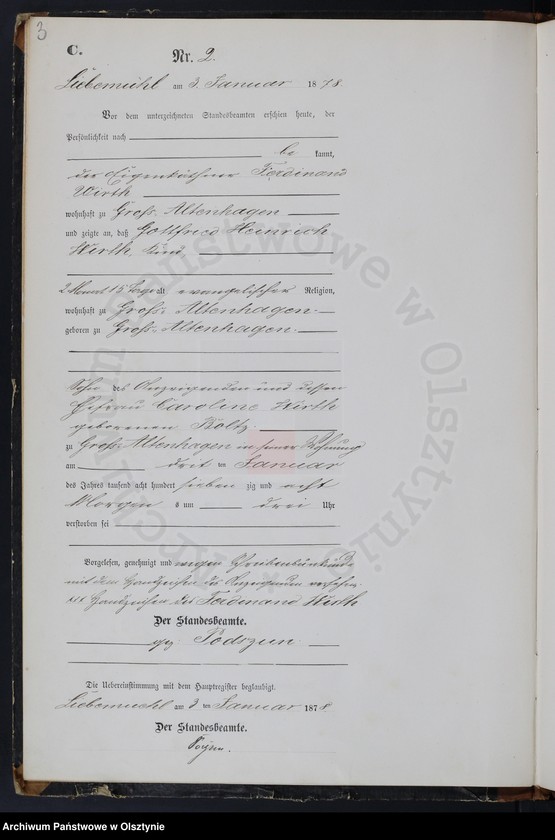 3
C.
Nr. 2.
Liebemühl am 3. Januar 1878.
Vor dem unterzeichneten Standesbeamten erschien heute, der
Persönlichkeit nach
be kannt,
der Eigenkäthner Ferdinand
Wirth
wohnhaft zu Groß-Altenhagen
und zeigte an, daß Gottfried Heinrich
Wirth, Kind,
2 Monat 15 Tage alt evangelischer Religion,
wohnhaft zu Groß-Altenhagen
geboren zu Groß-Altenhagen
Sohn des Anzeigenden und dessen
Ehefrau Caroline Wirth
geborenen Boltz
zu Groß-Altenhagen in seiner Wohnung
am drit ten Januar
des Jahres tausend acht hundert sieben zig und acht
Morgen s um drei Uhr
verstorben sei
Vorgelesen, genehmigt und wegen Schreibensunkunde
mit dem Handzeichen des Anzeigenden versehen.
xxx Handzeichen des Ferdinand Wirth
Der Standesbeamte.
gez. Podszun
Die Uebereinstimmung mit dem Hauptregister beglaubigt.
Liebemuehl am 3 ten Januar 1878
Der Standesbeamte.
Archiwum Państwowe w Olsztynie
Archiwum Państwowe w Olsztynie